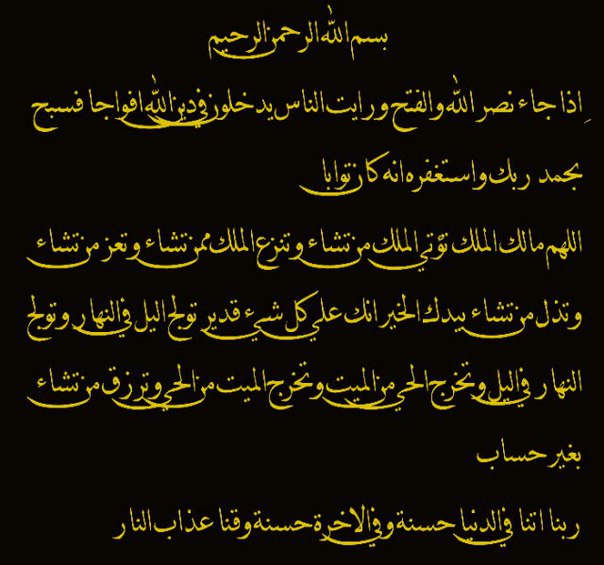 بسم الله الرحمن الرحيم
اذا جاء نصر الله والفتح ورايت الناس يدخلون في دين الله افواجا فسبح
بحمد ربك واستغفره انه كان توابا
اللهم مالك الملك تؤتي الملك من تشاء وتنزع الملك ممن تشاء وتعز من تشاء
وتذل من تشاء بيدك الخير انك علي كل شيء قدير تولج اليل في النهار وتولج
النهار في اليل وتخرج الحي من الميت وتخرج الميت من الحي وترزق من تشاء
بغير حساب
ربنا اتنا في الدنيا حسنة وفي الاخرة حسنة وقنا عذاب النار